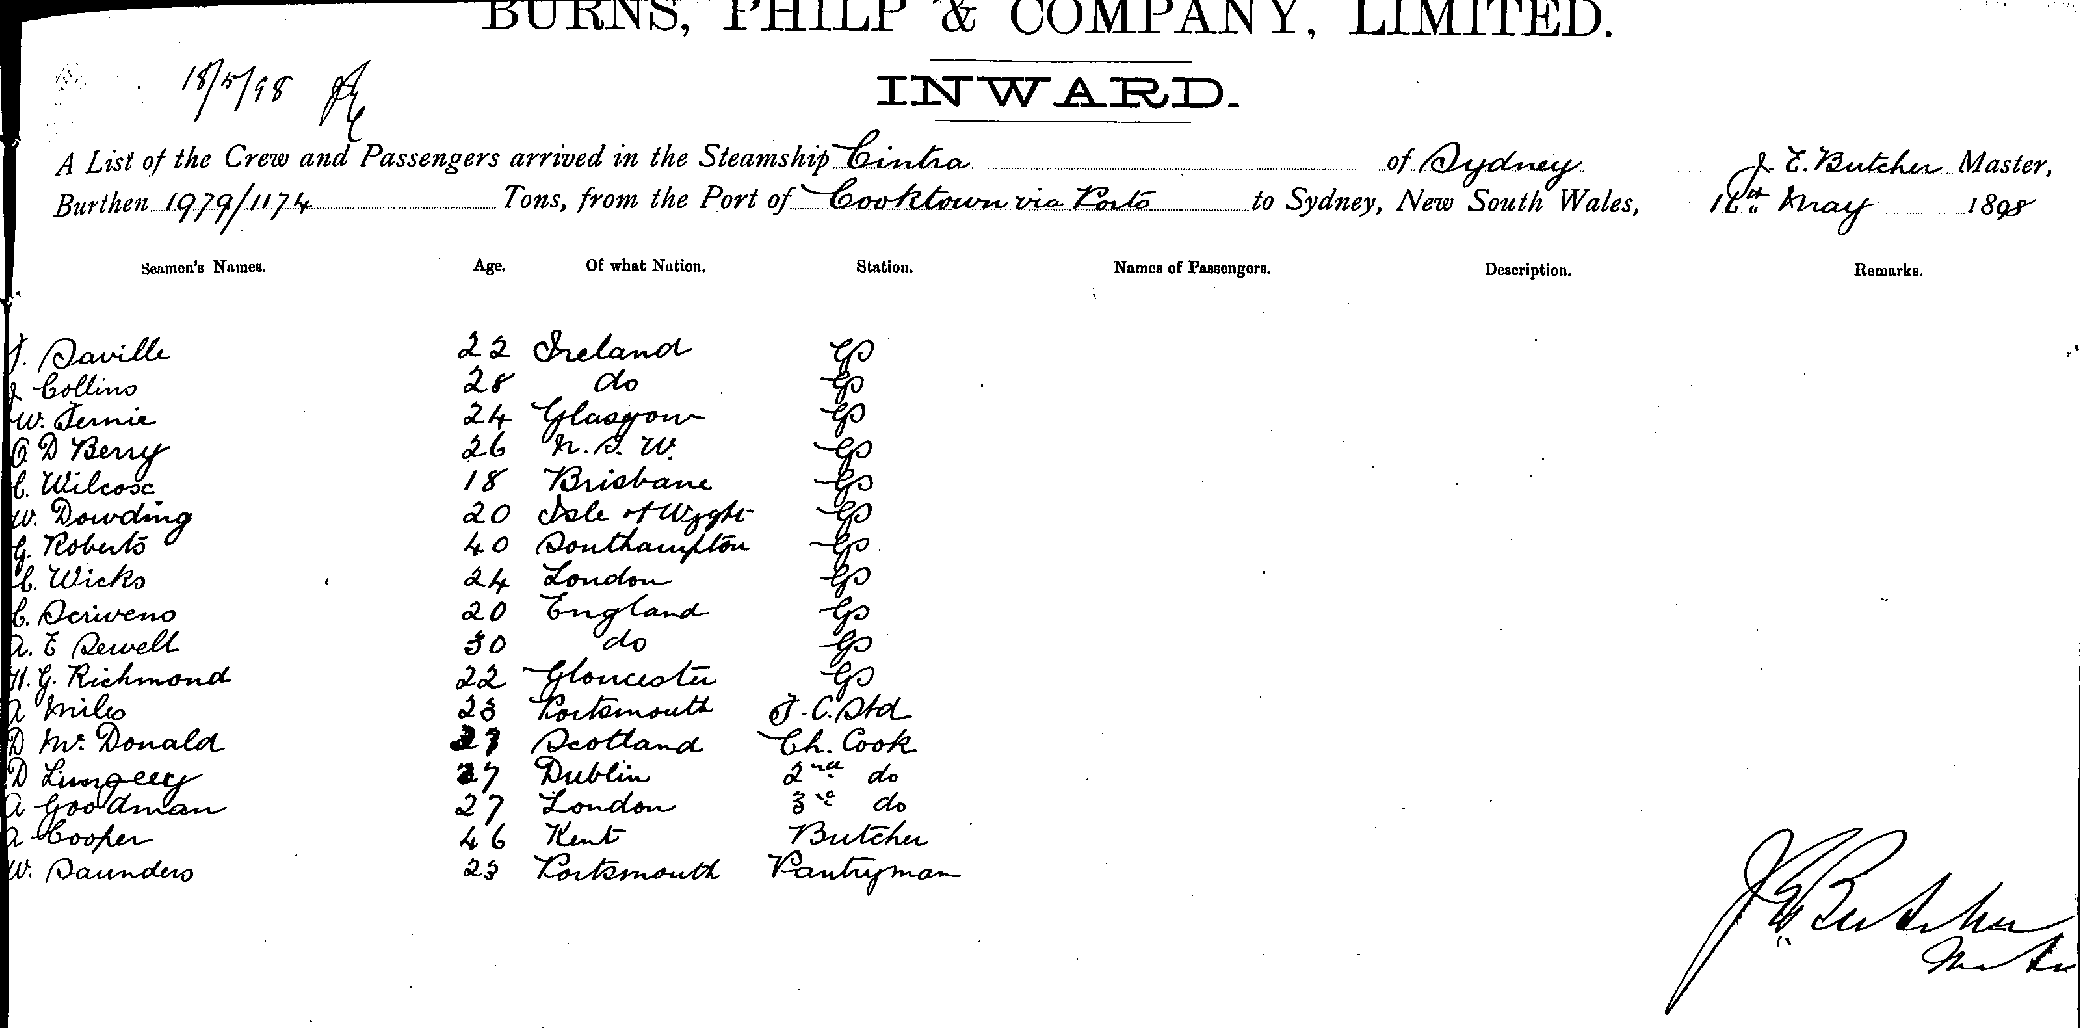 BURNS, PHILP & COMPANY, LIMITED.
18/5/98
INWARD.
A List of the Crew and Passengers arrived in the Steamship Cintra of Sydney J. E. Butcher Master,
Burthen 1979/1174 Tons, from the Port of Cooktown via Ports to Sydney, New South Wales, 16th May 1898
Seamen's Names. Age. Of what Nation. Station. Names of Passengers. Description. Remarks.
J. Saville 22 Ireland GS
J Collins 28 do GS
W. Fernie 24 Glasgow GS
D Berry 26 N. S. W. GS
C. Wilcox 18 Brisbane GS
W. Dowding 20 Isle of Wyght GS
G. Roberts 40 Southampton GS
C. Wicks 24 London GS
C. Scrivens 20 England GS
A. E Sewell 30 do GS
H. G. Richmond 22 Gloucester GS
A Miles 23 Portsmouth F. C. Std
D Mc. Donald 27 Scotland Ch. Cook
D 27 Dublin 2nd do
A Goodman 27 London 3rd do
A Cooper 46 Kent Butcher
W. Saunders 23 Portsmouth Pantryman
J E Butcher
Master